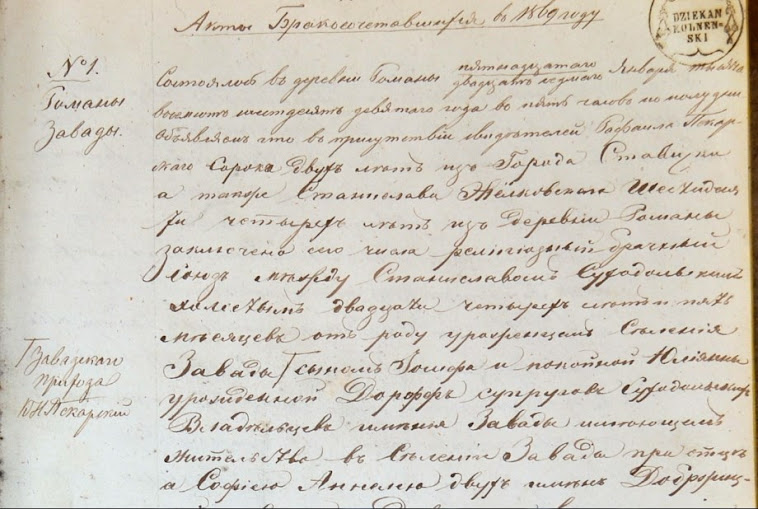 Акты Бракосочетавшихся в 1869 году
DZIEKAN
KOLNEN-
SKI
№ 1.
Романы
Завады.
Состоялось в деревни Романы пятнадцатаго
двадцать седьмаго Января тысяча
восемьсотъ шестьдесятъ девятаго года во пять часовъ по полудни
Объявляемъ что в присутствіи свидѣтелей Рафаила Пекар-
скаго Сорока двухъ лѣтъ изъ Города Стависки
а также Станислава Шестидеся
ти четырехъ лѣтъ изъ деревни Романы
заключенъ сего числа религіозный брачный
союзъ между Станиславомъ Суходольскимъ
холостымъ двадцати четырехъ лѣтъ и пять
мѣсяцевъ отъ роду урожденцемъ Селенія
Завады сыномъ Іозефа и покойной Юліянны
урожденной супруговъ Суходольскихъ
Владѣльцевъ имѣнья Завады имеющимъ
жительство в Селеніи Завада при отцѣ
а Софіею Анелею двухъ именъ
Завадскаго
прихода